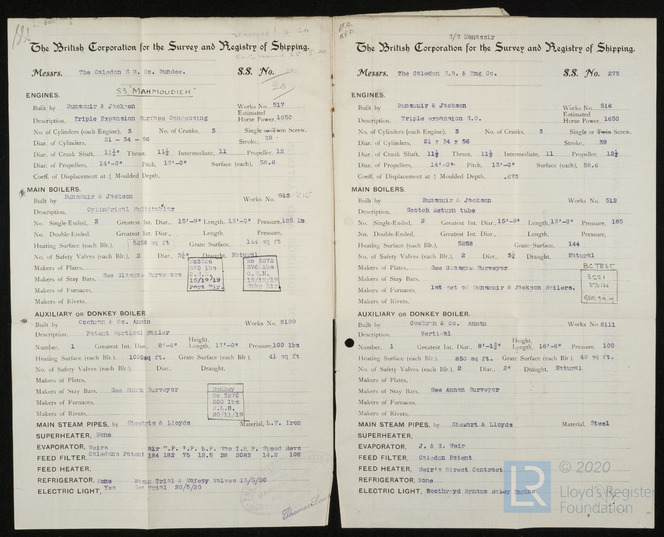 The British Corporation for the Survey and Registry of Shipping.
Messrs. The Caledon S.B. Co. Dundee. S.S. No.
SS "MAHMOUDIEH"
ENGINES.
Built by Dunsmuir & Jackson Works No. 517
Description, Triple Expansion Surface Condensing Estimated Horse Power, 1650
No. of Cylinders (each Engine), 3 No. of Cranks, 3 Single or Twin Screw.
Diar. of Cylinders, 21 - 34 - 56 Stroke: 39
Diar. of Crank Shaft, 11½" Thrust, 11½ Intermediate, 11 Propeller, 12
Diar. of Propellers, 14'-0" Pitch, 13'-0" Surface (each), 58.6
Coeff. of Displacement at ¾ Moulded Depth,
MAIN BOILERS.
Built by Dunsmuir & Jackson Works No. 513
Description, Cylindrical Multitubular
No. Single-Ended, 2 Greatest Int. Diar., 15'-9" Length, 13'-0" Pressure, 185 lb
No. Double-Ended, Greatest Int. Diar., Length, Pressure,
Heating Surface (each Blr.) 5258 sq ft Grate Surface, 144 sq ft
No. of Safety Valves (each Blr.) 2 Diar. Draught, Natural
Makers of Plates,
Makers of Stay Bars, See Glasgow Surveyors
Makers of Furnaces,
Makers of Rivets,
AUXILIARY or DONKEY BOILER.
Built by Cochran & Co. Annan Works No. 8199
Description, Patent Vertical Boiler
Number, 1 Greatest Int. Diar., 8'-6" Height, Length, 17'-0" Pressure, 100 lbs
Heating Surface (each Blr.) sq ft. Grate Surface (each Blr.) 41 sq ft
No. of Safety Valves (each Blr.) Diar., Draught,
Makers of Plates,
Makers of Stay Bars, See Annan Surveyor
Makers of Furnaces,
Makers of Rivets,
MAIN STEAM PIPES, by Stewarts & Lloyds Material, L.W. Iron
SUPERHEATER, None
EVAPORATOR, Weirs
FEED FILTER, Caledons Patent 184 182 75 12.5 28 2082 14.2 108
FEED HEATER,
REFRIGERATOR, None
ELECTRIC LIGHT, Yes Sea Trial 20/5/20
S/S Manassir
The British Corporation for the Survey and Registry of Shipping.
Messrs. The Caledon S.B. & Eng Co. S.S. No. 273
ENGINES.
Built by Dunsmuir & Jackson Works No. 516
Description, Triple expansion S.C. Estimated Horse Power, 1650
No. of Cylinders (each Engine), 3 No. of Cranks, 3 Single or Twin Screw.
Diar. of Cylinders, 21 x 34 x 56 Stroke, 39
Diar. of Crank Shaft, 11½ Thrust, 11½ Intermediate, 11 Propeller, 12½
Diar. of Propellers, 14'-0" Pitch, 13'-0" Surface (each), 58.6
Coeff. of Displacement at ¾ Moulded Depth, .673
MAIN BOILERS.
Built by Dunsmuir & Jackson Works No. 512
Description, Scotch Return tube
No. Single-Ended, 2 Greatest Int. Diar., 15'-9" Length, 13'-0" Pressure, 185
No. Double-Ended, Greatest Int. Diar., Length, Pressure,
Heating Surface (each Blr.) 5258 Grate Surface, 144
No. of Safety Valves (each Blr.) 2 Diar. Draught, Natural
Makers of Plates, See Glasgow Surveyor
Makers of Stay Bars,
Makers of Furnaces, 1st set of Dunsmuir & Jackson Boilers.
Makers of Rivets,
B.C TEST
AUXILIARY or DONKEY BOILER.
Built by Cochran & Co. Annan Works No. 8111
Description, Vertical
Number, 1 Greatest Int. Diar., Height, Length, 16'-6" Pressure, 100
Heating Surface (each Blr.) 650 sq ft. Grate Surface (each Blr.) 40 sq ft.
No. of Safety Valves (each Blr.) 2 Diar., 2" Draught, Natural
Makers of Plates,
Makers of Stay Bars, See Annan Surveyor
Makers of Furnaces,
Makers of Rivets,
MAIN STEAM PIPES, by Stewart & Lloyds Material, Steel
SUPERHEATER,
EVAPORATOR, J. & G. Weir
FEED FILTER, Caledon Patent
FEED HEATER, Weir's Direct Contract
REFRIGERATOR, None
ELECTRIC LIGHT,
LR © 2020
Lloyd's Register
Foundation